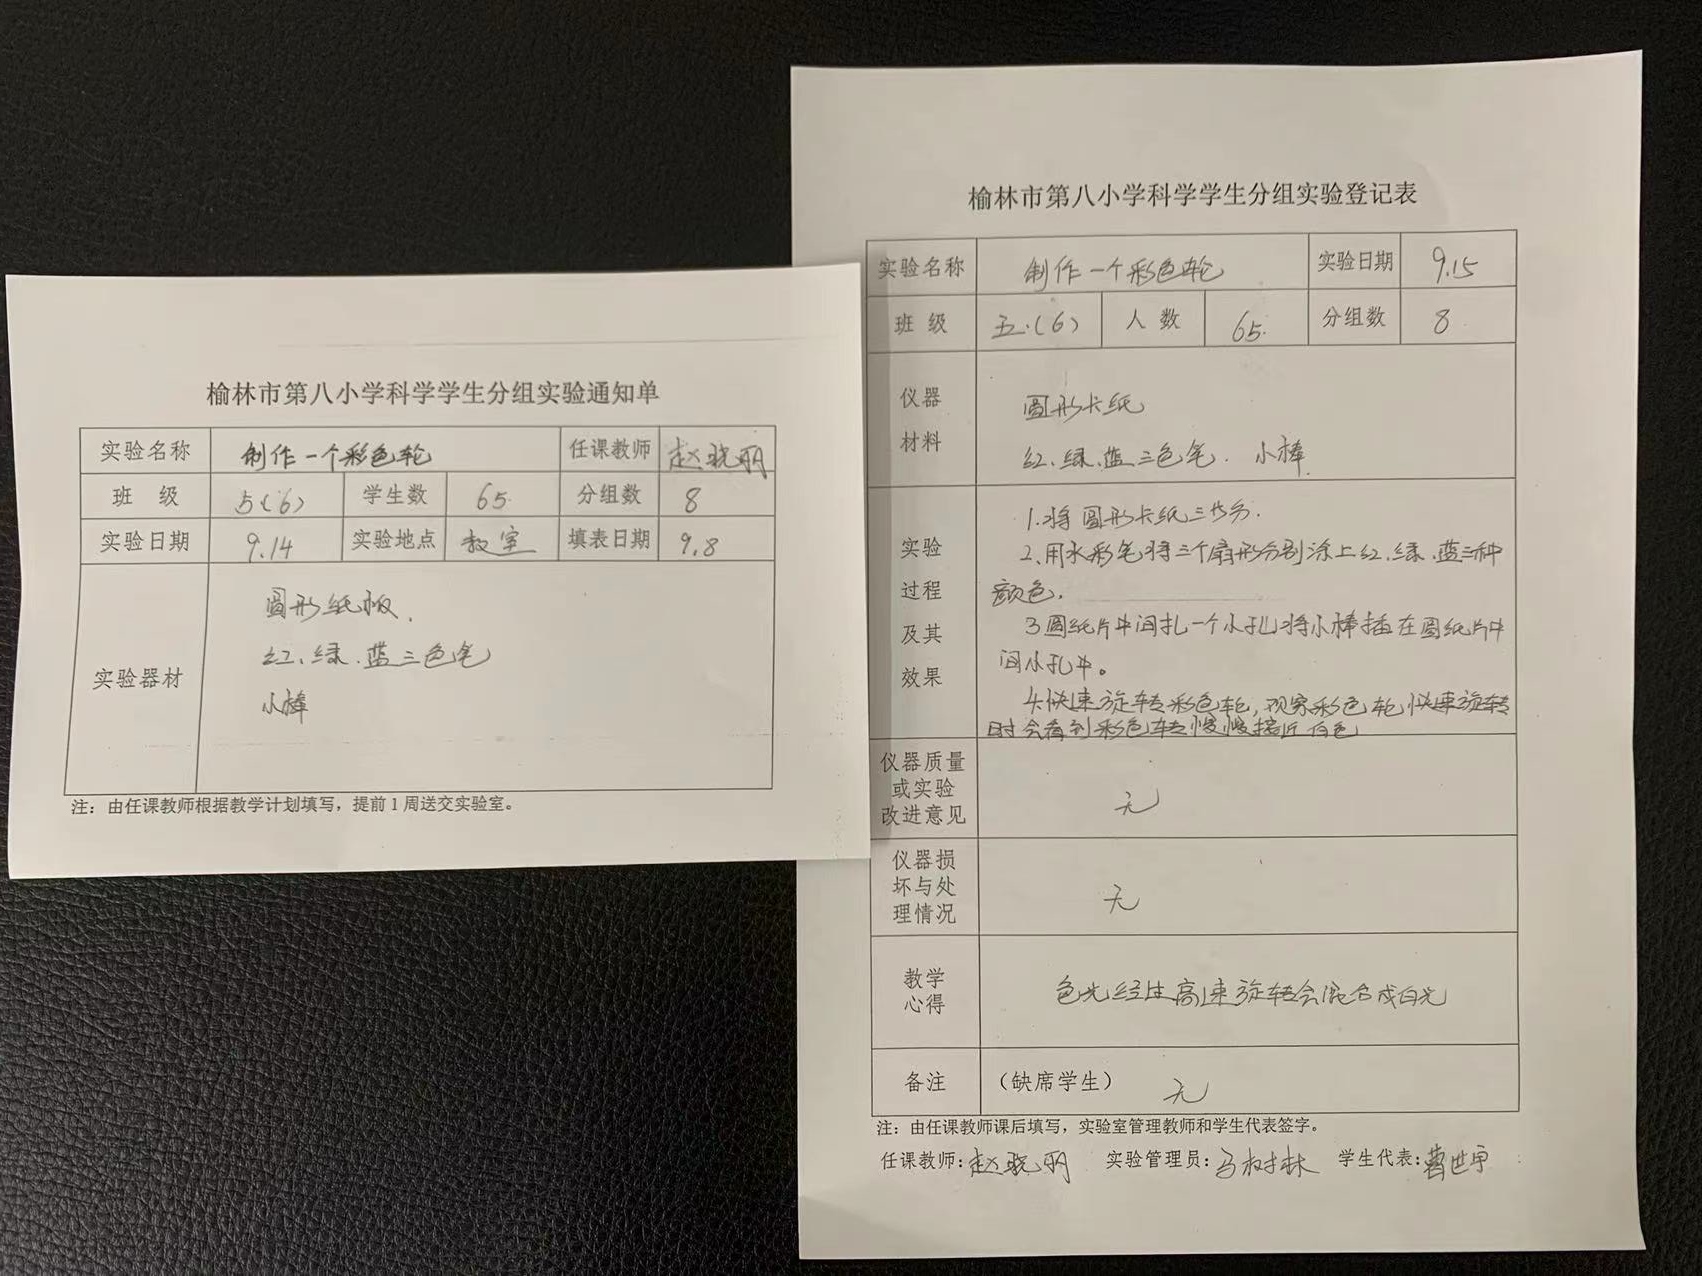 榆林市第八小学科学学生分组实验通知单
实验名称 制作一个彩色轮 任课教师 赵晓丽
班 级 5(6) 学生数 65 分组数 8
实验日期 9.14 实验地点 教室 填表日期 9.8
实验器材
圆形纸板.
红、绿.蓝三色笔
小棒
注：由任课教师根据教学计划填写，提前1周送交实验室。
榆林市第八小学科学学生分组实验登记表
实验名称 制作一个彩色轮 实验日期 9.15
班 级 五.(6) 人 数 65. 分组数 8
仪器
材料
圆形卡纸
红、绿.蓝三色笔. 小棒.
实验
过程
及其
效果
1.将圆形卡纸三等分.
2、用水彩笔将三个扇形分别涂上红.绿.蓝三种
颜色.
3圆纸片中间扎一个小孔,将小棒插在圆纸片中
间小孔中。
4.快速旋转彩色轮,观察彩色轮快速旋转
时会看到彩色转慢慢接近白色
仪器质量
或实验
改进意见
无
仪器损
坏与处
理情况
无
教学
心得
色光经过高速旋转会混合成白光
备注 （缺席学生） 无
注：由任课教师课后填写，实验室管理教师和学生代表签字。
任课教师:赵晓丽 实验管理员:马树林 学生代表:曹世甲